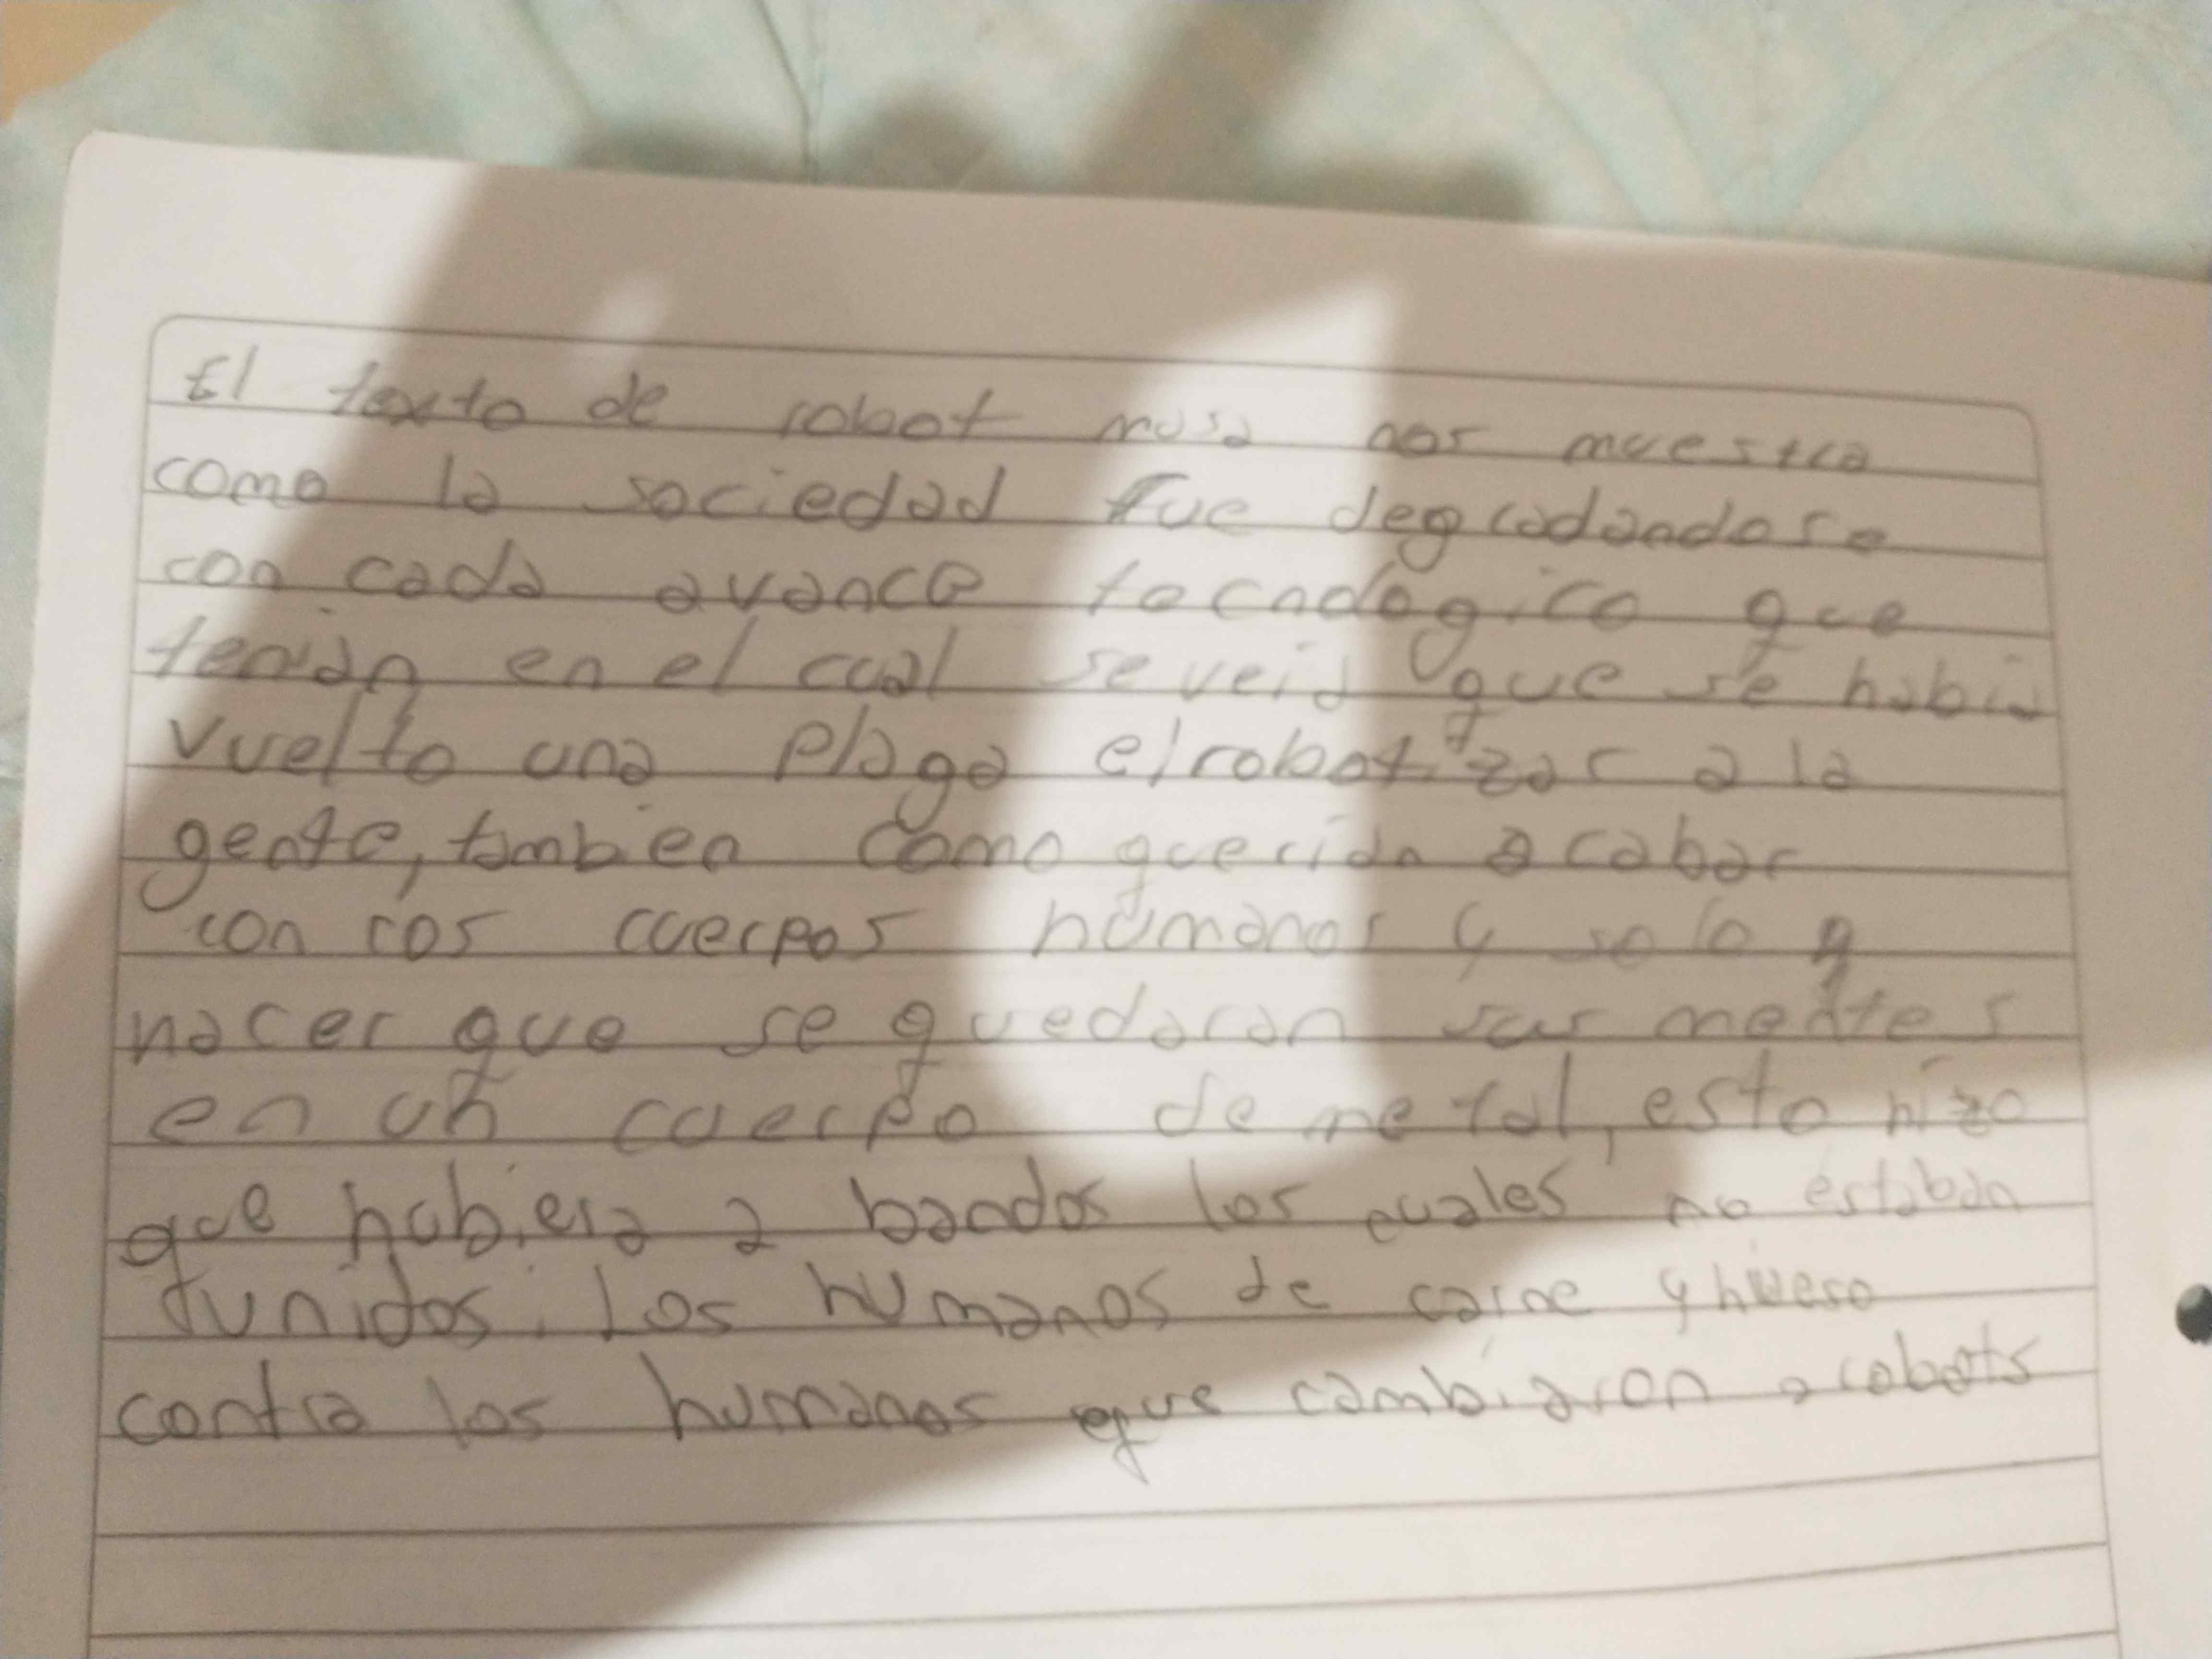 El texto de robot masa nos muestra
como la sociedad fue degradandose
con cada avance tecnologico que
tenian en el cual se veia que se habia
vuelto una plaga el robotizar a la
gente, tambien como querian acabar
con los cuerpos humanos y solo
hacer que se quedaran sus mentes
en un cuerpo de metal, esto hizo
que hubiera 2 bandos los cuales no estaban
unidos. Los humanos de carne y hueso
contra los humanos que cambiaron a robots